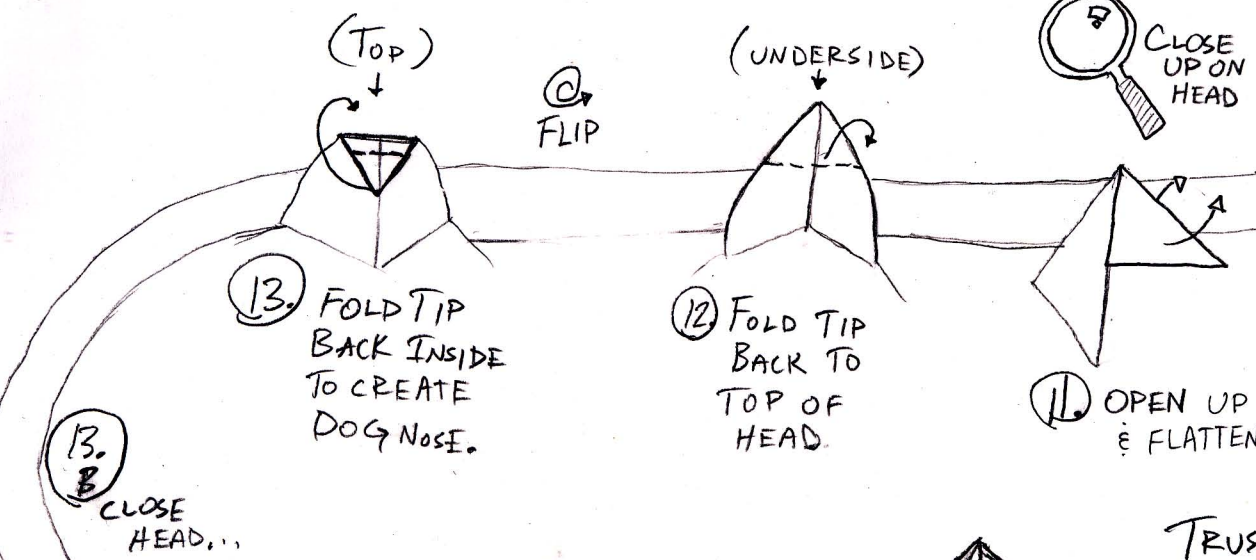 (TOP)
FLIP
(UNDERSIDE)
CLOSE
UP ON
HEAD
13. FOLD TIP
BACK INSIDE
TO CREATE
DOG NOSE.
12. FOLD TIP
BACK TO
TOP OF
HEAD.
11. OPEN UP
& FLATTEN
13.
B
CLOSE
HEAD...